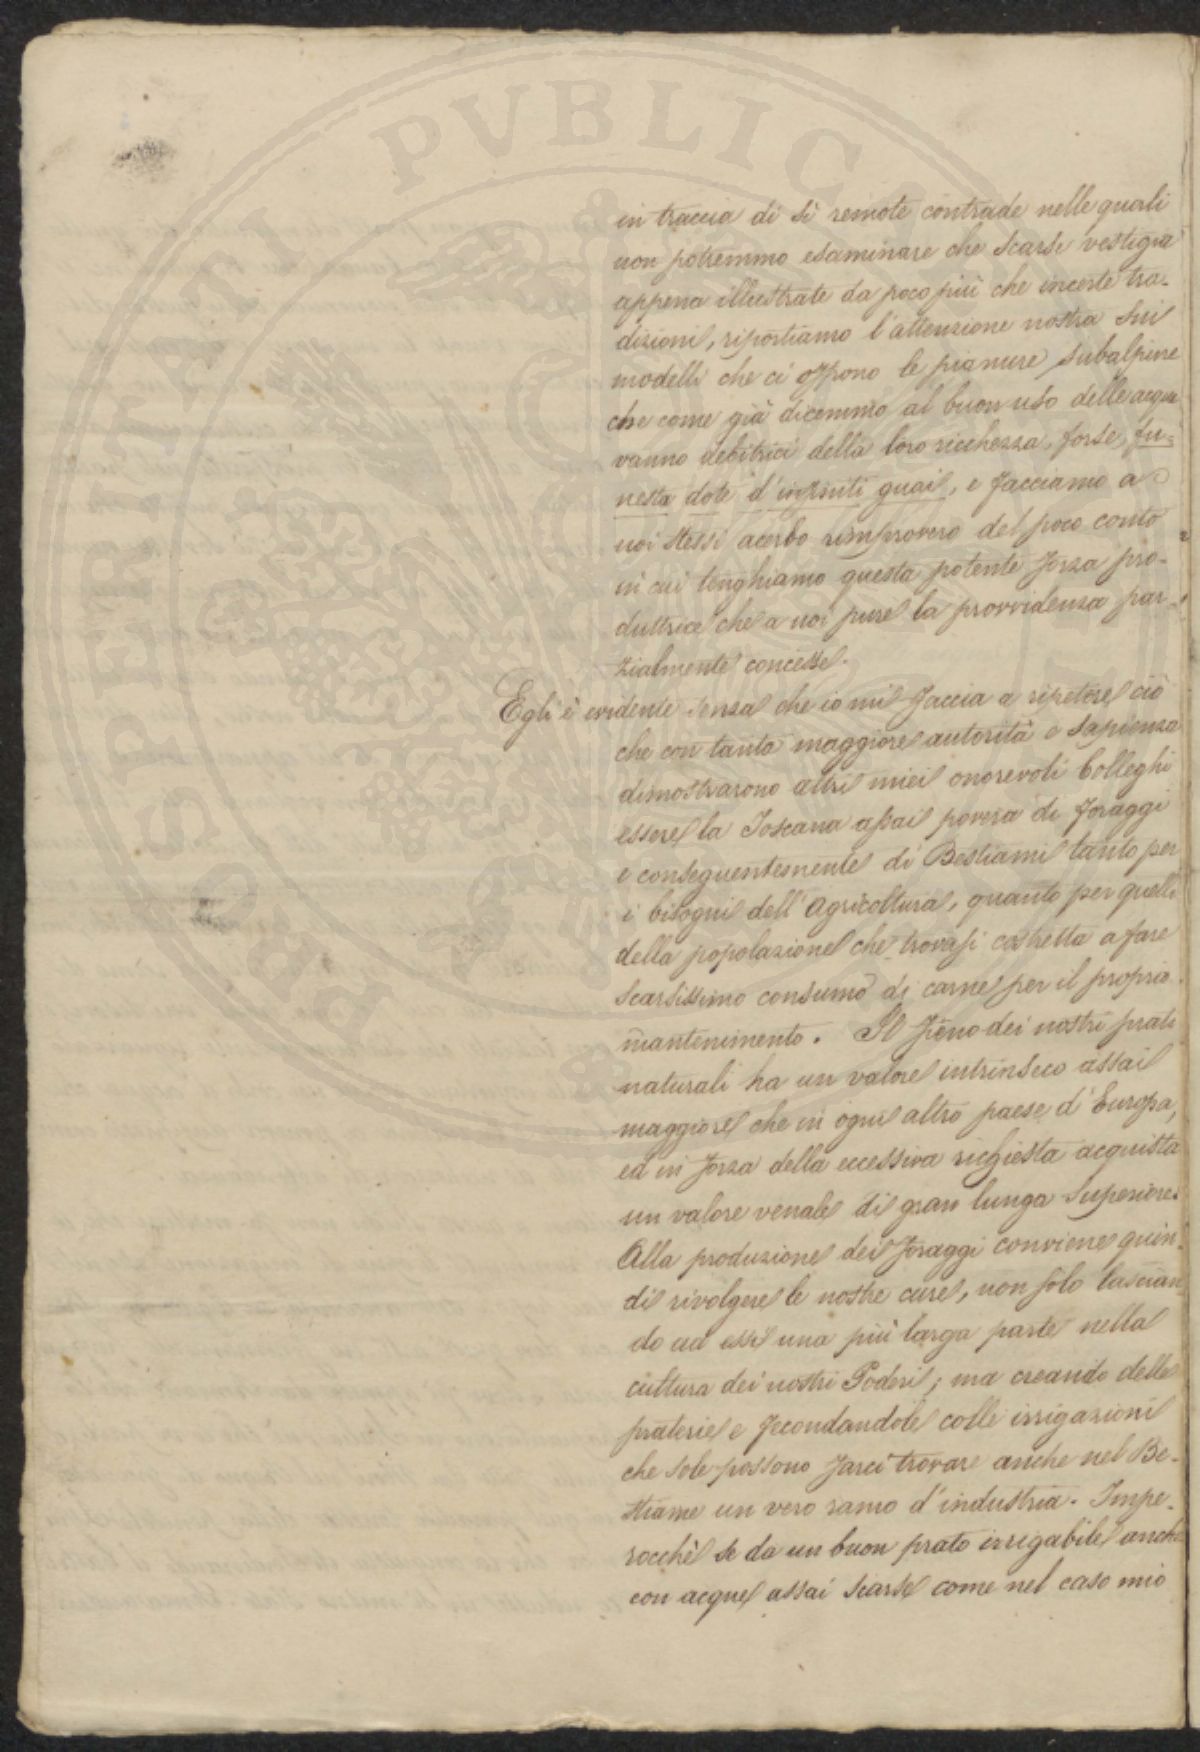 in traccia di sì remote contrade nelle quali
non potremmo esaminare che scarse vestigia
appena illustrate da poco più che incerte tra-
dizioni, riportiamo l'attenzione nostra sui
modelli che ci offrono le pianure subalpine
che come già dicemmo al buon uso delle acque
vanno debitrici della loro ricchezza, forse, fu-
nesta dote d'infiniti guai, e facciamo a
noi stessi acerbo rimprovero del poco conto
in cui tenghiamo questa potente forza pro-
duttrice che a noi pure la provvidenza par-
zialmente concesse.
Egli è evidente senza che io mi faccia a ripetere ciò
che con tanta maggiore autorità e sapienza
dimostrarono altri miei onorevoli Colleghi
essere la Toscana assai povera di foraggi
e conseguentemente di Bestiami tanto per
i bisogni dell'Agricoltura, quanto per quelli
della popolazione che trovasi costretta a fare
scarsissimo consumo di carne per il proprio
mantenimento. Il fieno dei nostri prati
naturali ha un valore intrinseco assai
maggiore che in ogni altro paese d'Europa,
ed in forza della eccessiva richiesta acquista
un valore venale di gran lunga superiore.
Alla produzione dei foraggi conviene quin-
di rivolgere le nostre cure, non solo lascian
do ad essi una più larga parte nella
cultura dei nostri Poderi; ma creando delle
praterie e fecondandole colle irrigazioni
che sole possono farci trovare anche nel Be-
stiame un vero ramo d'industria. Impe-
rocchè se da un buon prato irrigabile anche
con acque assai scarse come nel caso mio
PROSPERITATI PVBLICAE